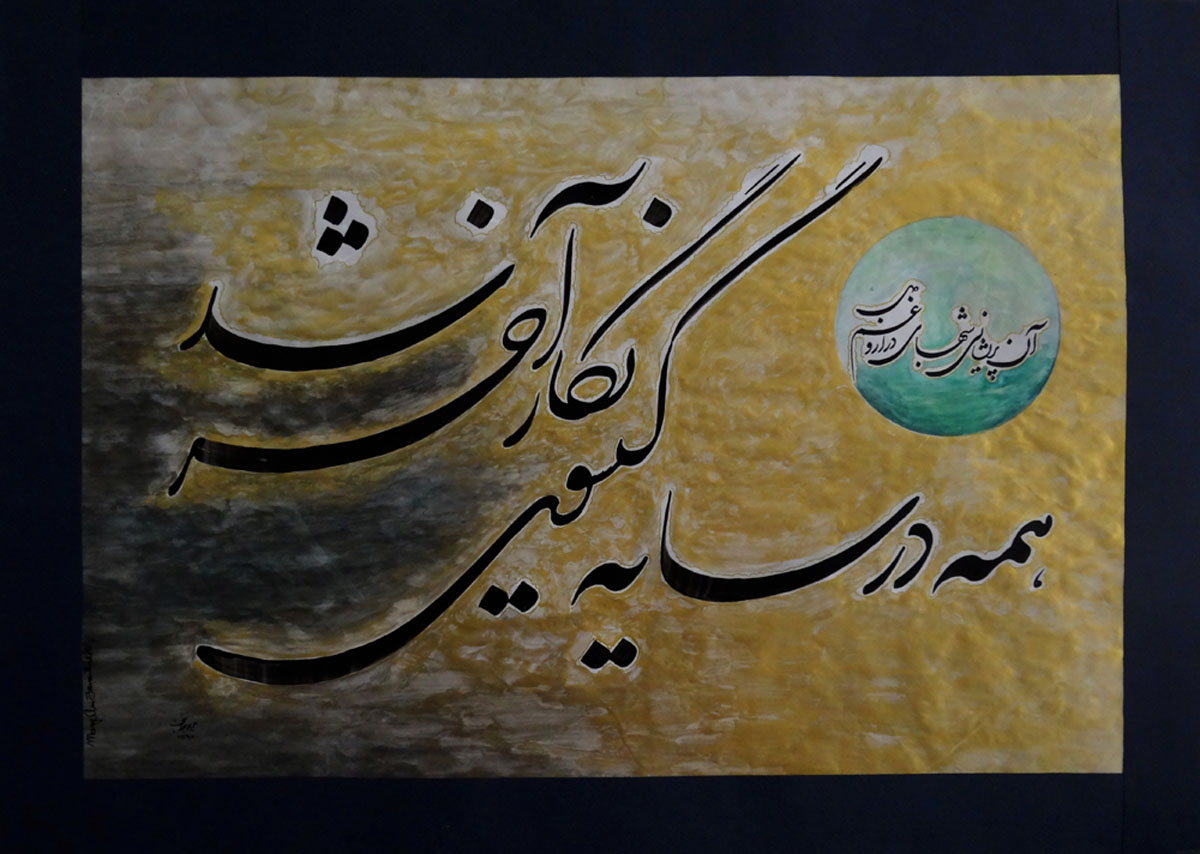 آن پریشانی شبهای دراز و غم دل
همه در سایه گیسوی نگار آخر شد